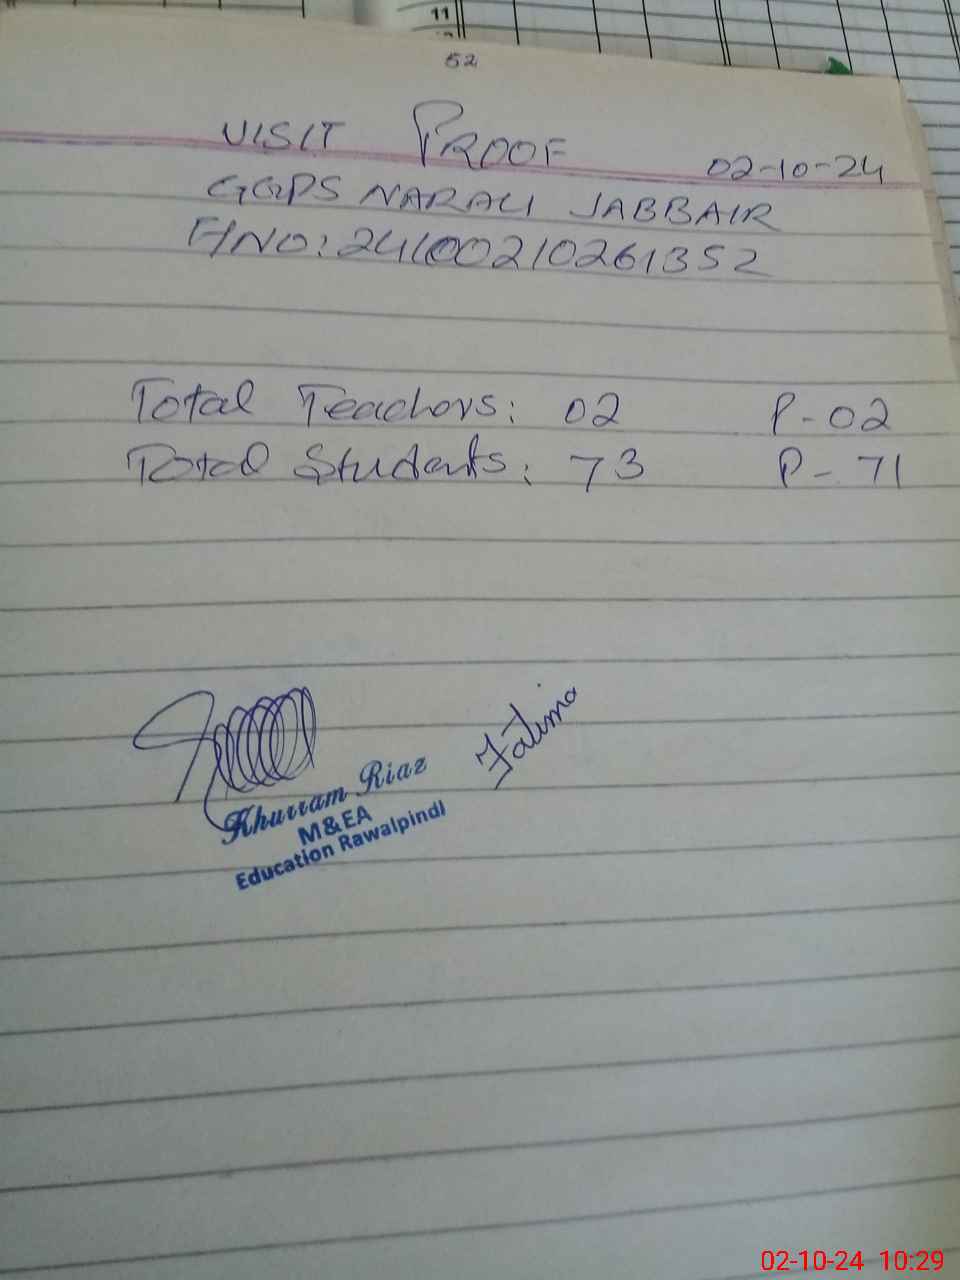 11
52
VISIT PROOF 02-10-24
GGPS NARALI JABBAIR
F/NO: 24100210261352
Total Teachers: 02 P-02
Total Students: 73 P-71
Fatima
Khurram Riaz
M&EA
Education Rawalpindi
02-10-24 10:29